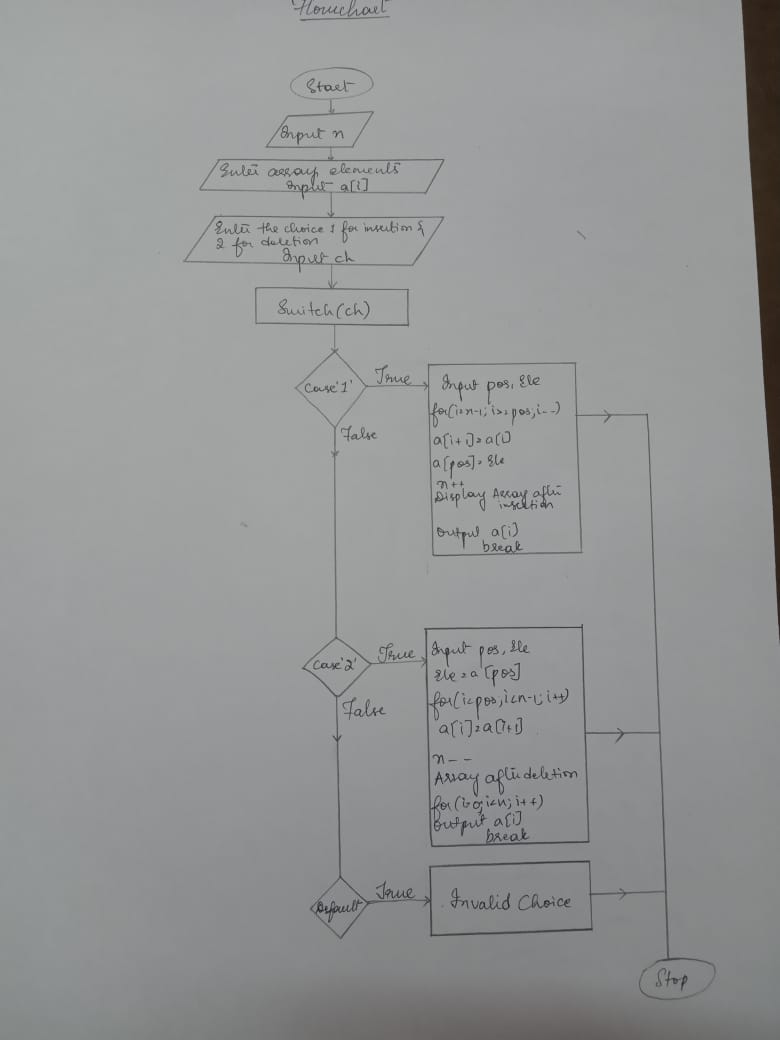 Flowchart
Start
Input n
Enter array elements
Input a[i]
Enter the choice 1 for insertion &
2 for deletion
Input ch
Switch(ch)
Case '1'
True
Input pos, ele
for(i=n-1; i>=pos; i--)
a[i+1]=a[i]
a[pos]=ele
n++
Display Array after
insertion
Output a[i]
break
False
Case '2'
True
Input pos, ele
ele=a[pos]
for(i=pos; i<n-1; i++)
a[i]=a[i+1]
n--
Array after deletion
for(i=0; i<n; i++)
Output a[i]
break
False
Default
True
Invalid Choice
Stop